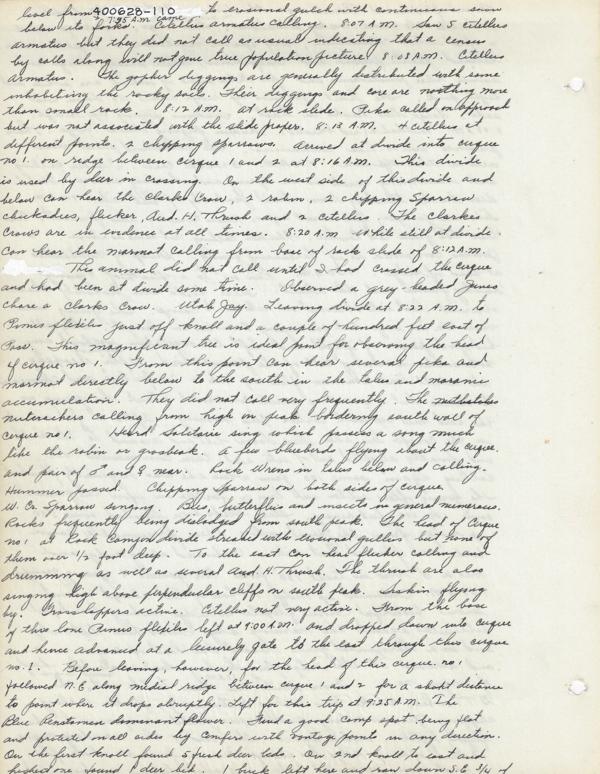 400628-110
level from to erosional gulch with continuous snow
below its forks. 7:55 A.M. came Citellus armatus calling. 8:07 A.M. Saw 5 citellus
armatus but they did not call as usual indicating that a census
by calls along will not give true population picture. 8:08 A.M. Citellus
armatus. The gopher diggings are generally distributed with some
inhabiting the rocky soil. Their diggings and core are nothing more
than small rock. 8:12 A.M. at rock slide. Pika called on approach
but was not associated with the slide proper. 8:13 A.M. 4 citellus at
different points. 2 chipping sparrows. Arrived at divide into cirque
no 1. on ridge between cirque 1 and 2 at 8:16 A.M. This divide
is used by deer in crossing. On the west side of this divide and
below can hear the Clarks Crow, 2 robin, 2 chipping Sparrow
chickadees, flicker, Aud. H. Thrush and 2 citellus. The Clarkes
Crows are in evidence at all times. 8:20 A.M. While still at divide.
Can hear the marmot calling from base of rock slide of 8:12 A.M.
This animal did not call until I had crossed the cirque
and had been at divide some time. Observed a grey-headed Junco
chase a Clarks Crow. Utah Jay. Leaving divide at 8:22 A.M. to
Pinus flexilis just off knoll and a couple of hundred feet east of
Pass. This magnificent tree is ideal point for observing the head
of cirque no 1. From this point can hear several pika and
marmot directly below to the south in the talus and morainic
accumulation. They did not call very frequently. The nuthatches
nutcrackers calling from high on peak bordering south wall of
cirque no 1. Heard Solitaire sing which passes a song much
like the robin or grosbeak. A few bluebirds flying about the cirque.
and pair of ♂ and ♀ near. Rock Wrens in talus below and calling.
Hummer passed. Chipping Sparrow on both sides of cirque
W. Cr. Sparrow singing. Bees, butterflies and insects in general numerous.
Rocks frequently being dislodged from south peak. The head of Cirque
no 1 at Rock Canyon divide streaked with erosional gullies but none of
them over 1/2 foot deep. To the east can hear flicker calling and
drumming as well as several Aud. H. Thrush. The thrush are also
singing high above perpendicular cliffs on south peak. Siskin flying
by. Grasshoppers active. Citellus not very active. From the base
of this lone Pinus flexilis left at 9:00 A.M. and dropped down into cirque
and hence advanced at a leisurely gate to the east through this cirque
no. 1. Before leaving, however, for the head of this cirque no 1
followed N.E along medial ridge between cirque 1 and 2 for a short distance
to point where it drops abruptly. Left for this trip at 9:25 A.M. The
Blue Penstemon dominant flower. Find a good camp spot being flat
and protected on all sides by conifers with vantage points in any direction.
On the first knoll found 5 fresh deer beds. On 2nd knoll to east and
highest one found 1 deer bed. 1 buck left here and ran down S.E 3/4 of